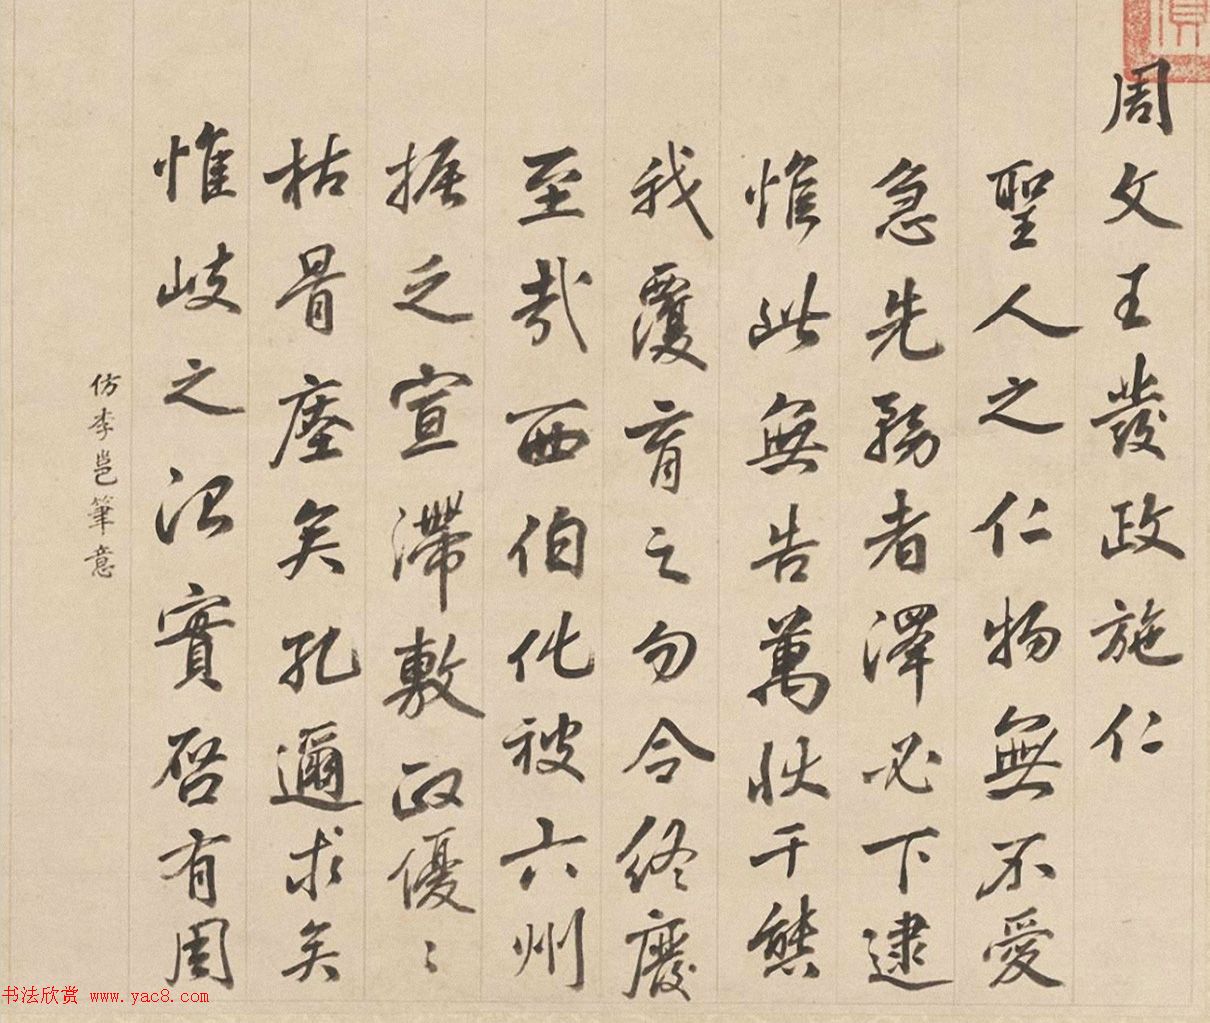 周文王發政施仁
聖人之仁物無不愛
急先務者澤必下逮
惟此無告萬狀千態
我覆育之勿令終廢
至哉西伯化被六州
振乏宣滯敷政優〻
枯骨塟矣孔邇求矣
惟岐之治實啓有周
仿李邕筆意
书法欣赏 www.yac8.com